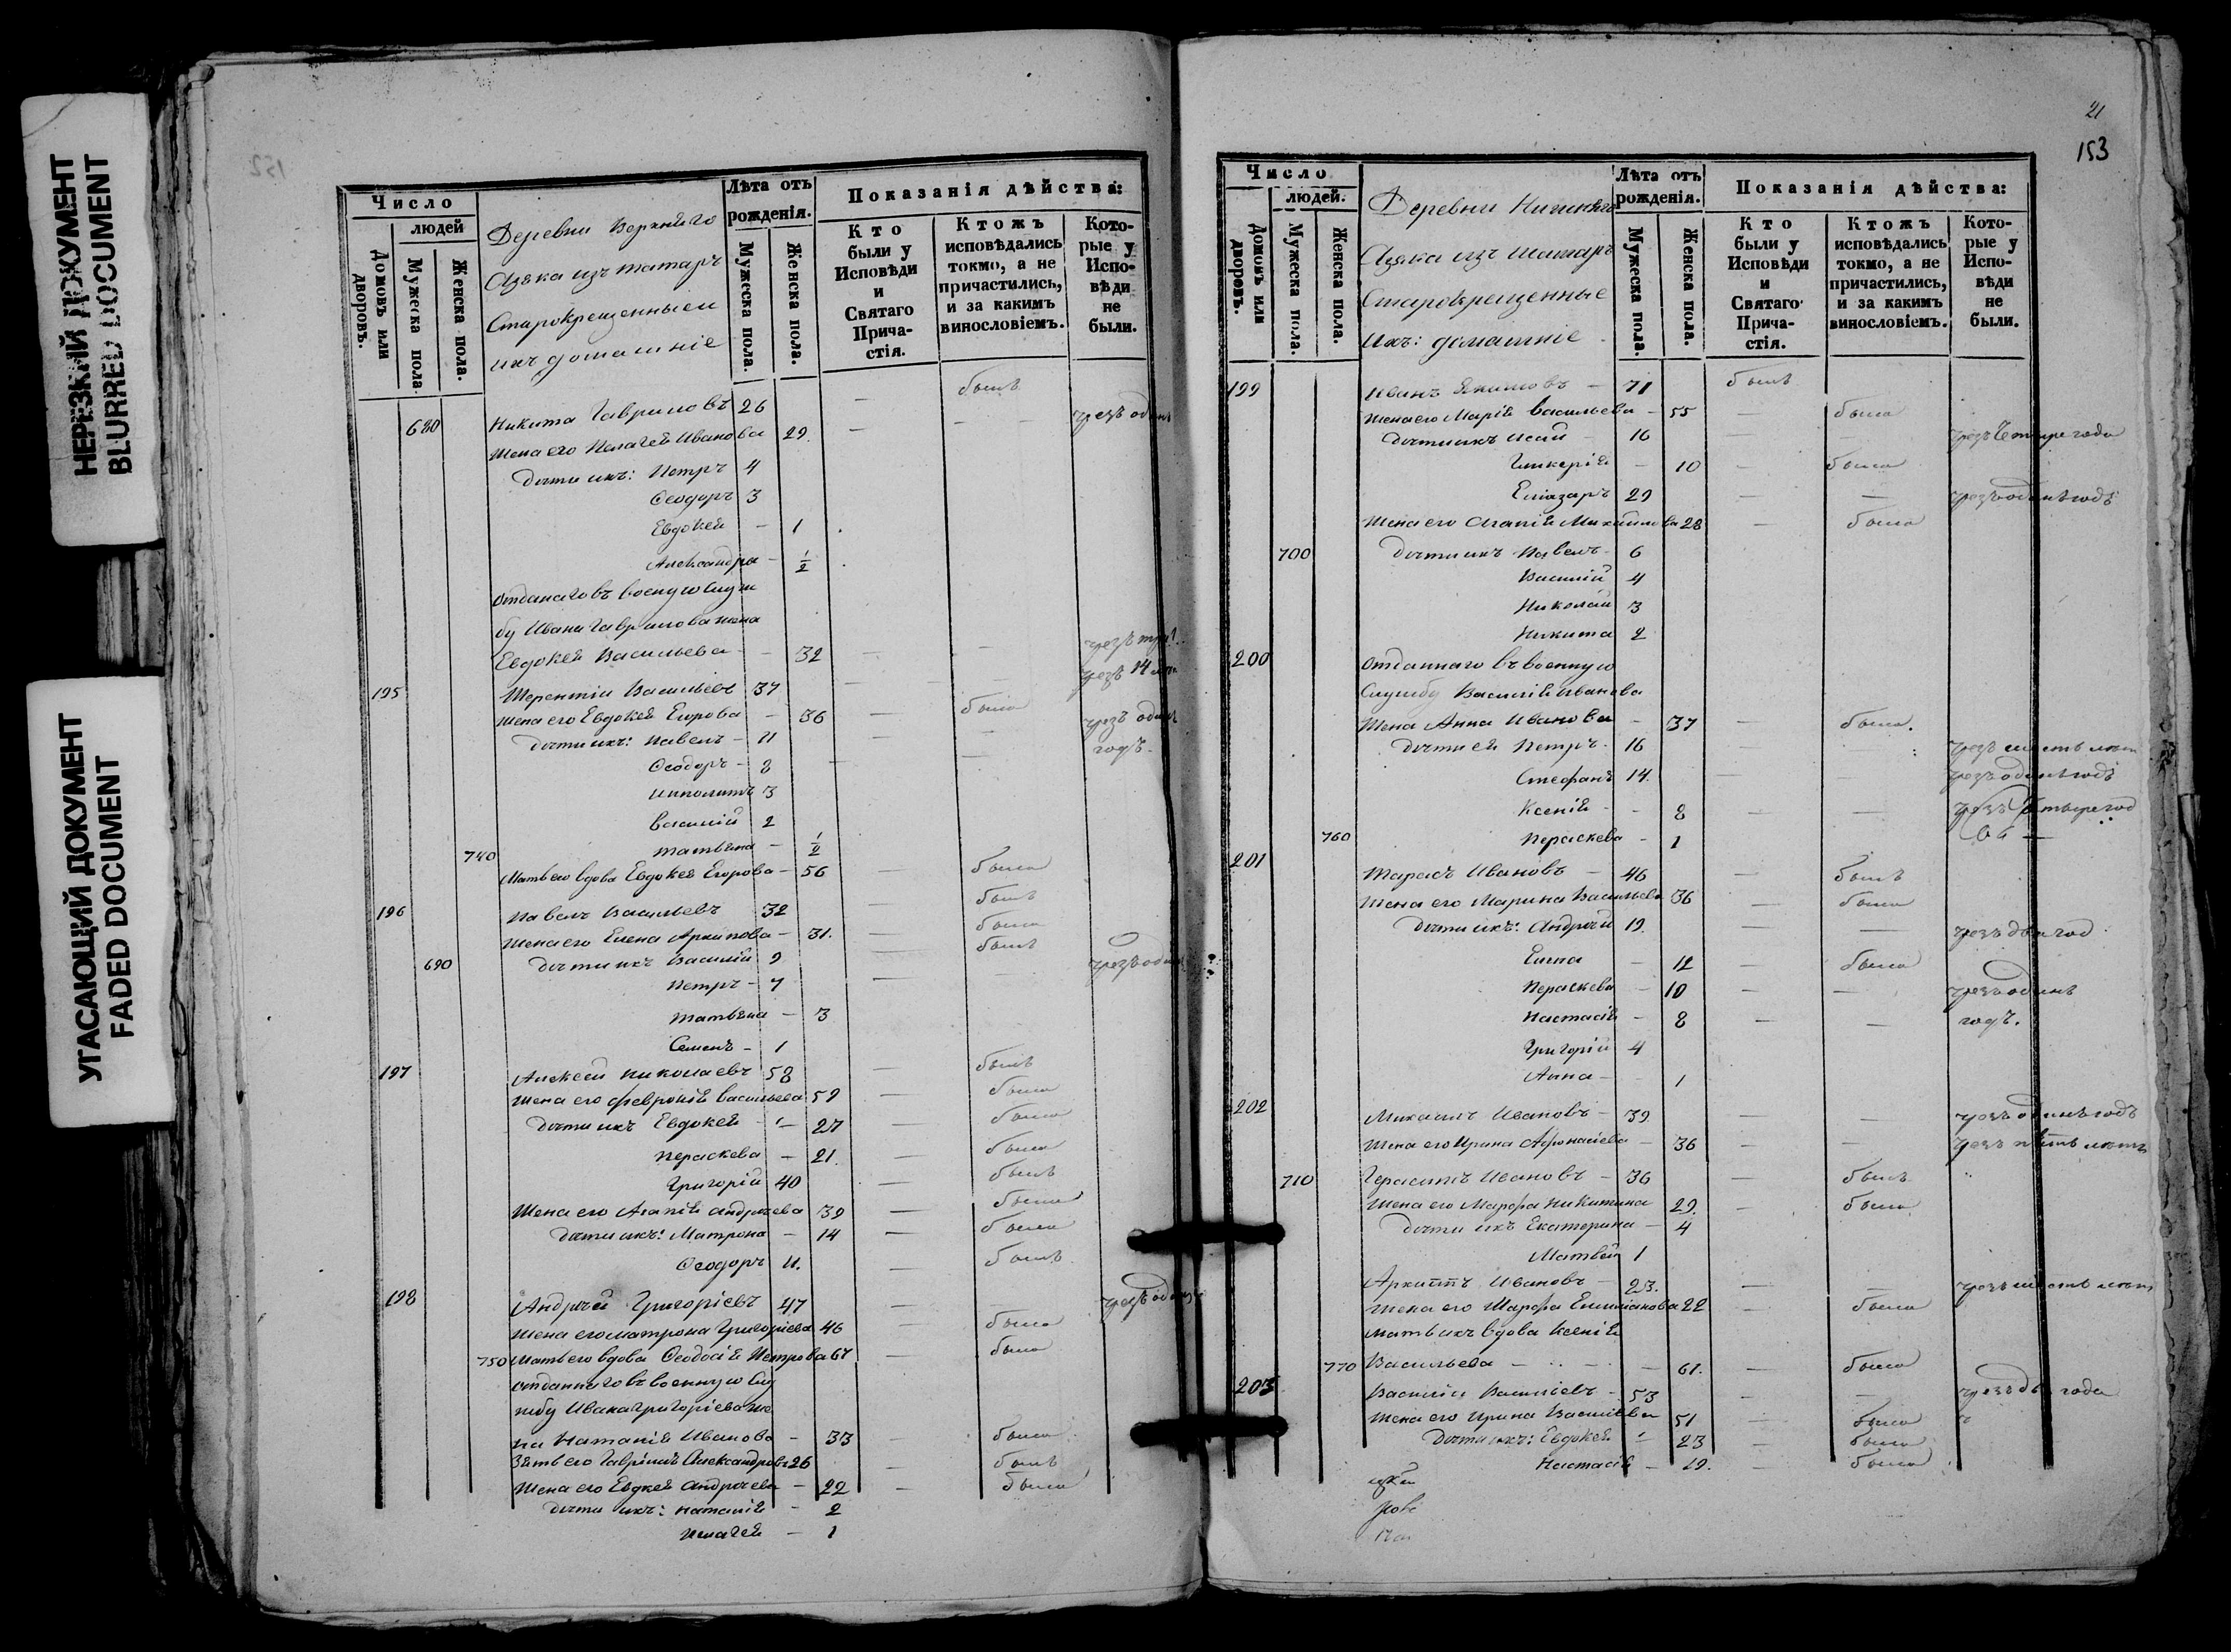 НЕРЕЗКИЙ ДОКУМЕНТ
BLURRED DOCUMENT
УГАСАЮЩИЙ ДОКУМЕНТ
FADED DOCUMENT
152
Число
людей
Домовъ или дворовъ.
Мужеска пола.
Женска пола.
Деревни Верхняго
Азяка изъ татаръ
Старокрещенные и
ихъ домашніе
Лѣта отъ рожденія.
Мужеска пола.
Женска пола.
Показанія дѣйства:
Кто были у Исповѣди и Святаго Причастія.
Ктожъ исповѣдались токмо, а не причастились, и за какимъ винословіемъ.
Которые у Исповѣди не были.
680 Никита Гавриловъ 26 — былъ
Жена его Пелагея Иванова 29 — — чрезъ одинъ
Дѣти ихъ: Петръ 4
Ѳеодоръ 3
Евдокея — 1
Александра — 1/2
Отданаго въ военую служ
бу Ивана Гаврилова жена
Евдокея Васильева — 32 — — чрезъ три
195 Терентій Васильевъ 37 — — чрезъ 14 лѣтъ
Жена его Евдокея Егорова — 36 — была
Дѣти ихъ: Павелъ — 11 — — чрезъ одинъ
Ѳеодоръ — 8 — — годъ.
Ипполитъ 3
Василій 2
740 Татьяна — 1/2
Мать его вдова Евдокея Егорова — 56 — была
196 Павелъ Васильевъ 32 — былъ
Жена его Елена Архипова — 31. — была
690 Дѣти ихъ Василій 9 былъ
Петръ — 7 — — чрезъ одинъ
Татьяна — 3
Семенъ — 1
197 Алексей Николаевъ 58 — былъ
Жена его Февронія Васильева 59 — была
Дѣти ихъ Евдокея — 27 — была
Пераскева — 21. — была
Григорій 40 — былъ
Жена его Агапія Андреева 39 — была
Дѣти ихъ: Матрона — 14 — была
Ѳеодоръ 11. — былъ
198 Андрей Григоріевъ 47 — — чрезъ одинъ
Жена его Матрона Григоріева 46 — была
750 Мать его вдова Ѳеодосія Петрова 67 — была
Отданнаго въ военную слу
жбу Ивана Григоріева же
на Наталія Иванова — 33 была
Зять его Гавріилъ Александровъ 26 — былъ
Жена его Евдокея Андреева — 22 — была
Дѣти ихъ: Наталія — 2
Пелагея — 1
21
153
Число
людей.
Домовъ или дворовъ.
Мужеска пола.
Женска пола.
Деревни Нижняго
Азяка изъ татаръ
Старокрещенные
ихъ: домашніе
Лѣта отъ рожденія.
Мужеска пола.
Женска пола.
Показанія дѣйства:
Кто были у Исповѣди и Святаго Причастія.
Ктожъ исповѣдались токмо, а не причастились, и за какимъ винословіемъ.
Которые у Исповѣди не были.
199 Иванъ Якимовъ — 71 былъ
Жена его Марія Васильева — 55 — была
Дѣти ихъ Исай — 16 — — чрезъ четыре года
Гликерія — 10 — была
Еліазаръ 29 — — чрезъ одинъ годъ
Жена его Агапія Михайлова 28 — была
700 Дѣти ихъ Павелъ 6
Василій 4
Николай 3
Никита 2
200 Отданнаго въ военную
Службу Василія Иванова
Жена Анна Иванова — 37 — была.
Дѣти ея Петръ 16 — чрезъ шесть лѣтъ
Стефанъ 14. — — чрезъ одинъ годъ
Ксенія — 8 — — чрезъ четыре год
760 Пераскева — 1
201 Тарасъ Ивановъ — 46 — былъ
Жена его Марина Васильева 36 — была
Дѣти ихъ: Андрей 19. — — чрезъ два год
Елена — 12 — была
Пераскева — 10 — — чрезъ одинъ
Настасія — 8 — — годъ.
Григорій 4
Анна — 1
202 Михаилъ Ивановъ — 39 — — чрезъ одинъ годъ
Жена его Ирина Афонасіева — 36 — — чрезъ пять лѣтъ
710 Герасимъ Ивановъ — 36 — былъ
Жена его Марфа Никитина 29. — была
Дѣти ихъ Екатерина — 4
Матвей 1
Архиппъ Ивановъ — 23. — — чрезъ шесть лѣтъ
Жена его Марфа Емилианова 22 — была
Мать ихъ вдова Ксенія
770 Васильева — — — 61. — была
203 Василій Василіевъ — 53 — — чрезъ два года
Жена его Ирина Василіева 51 — была
Дѣти ихъ: Евдокея — 23 — была
Настасія — 19. — была